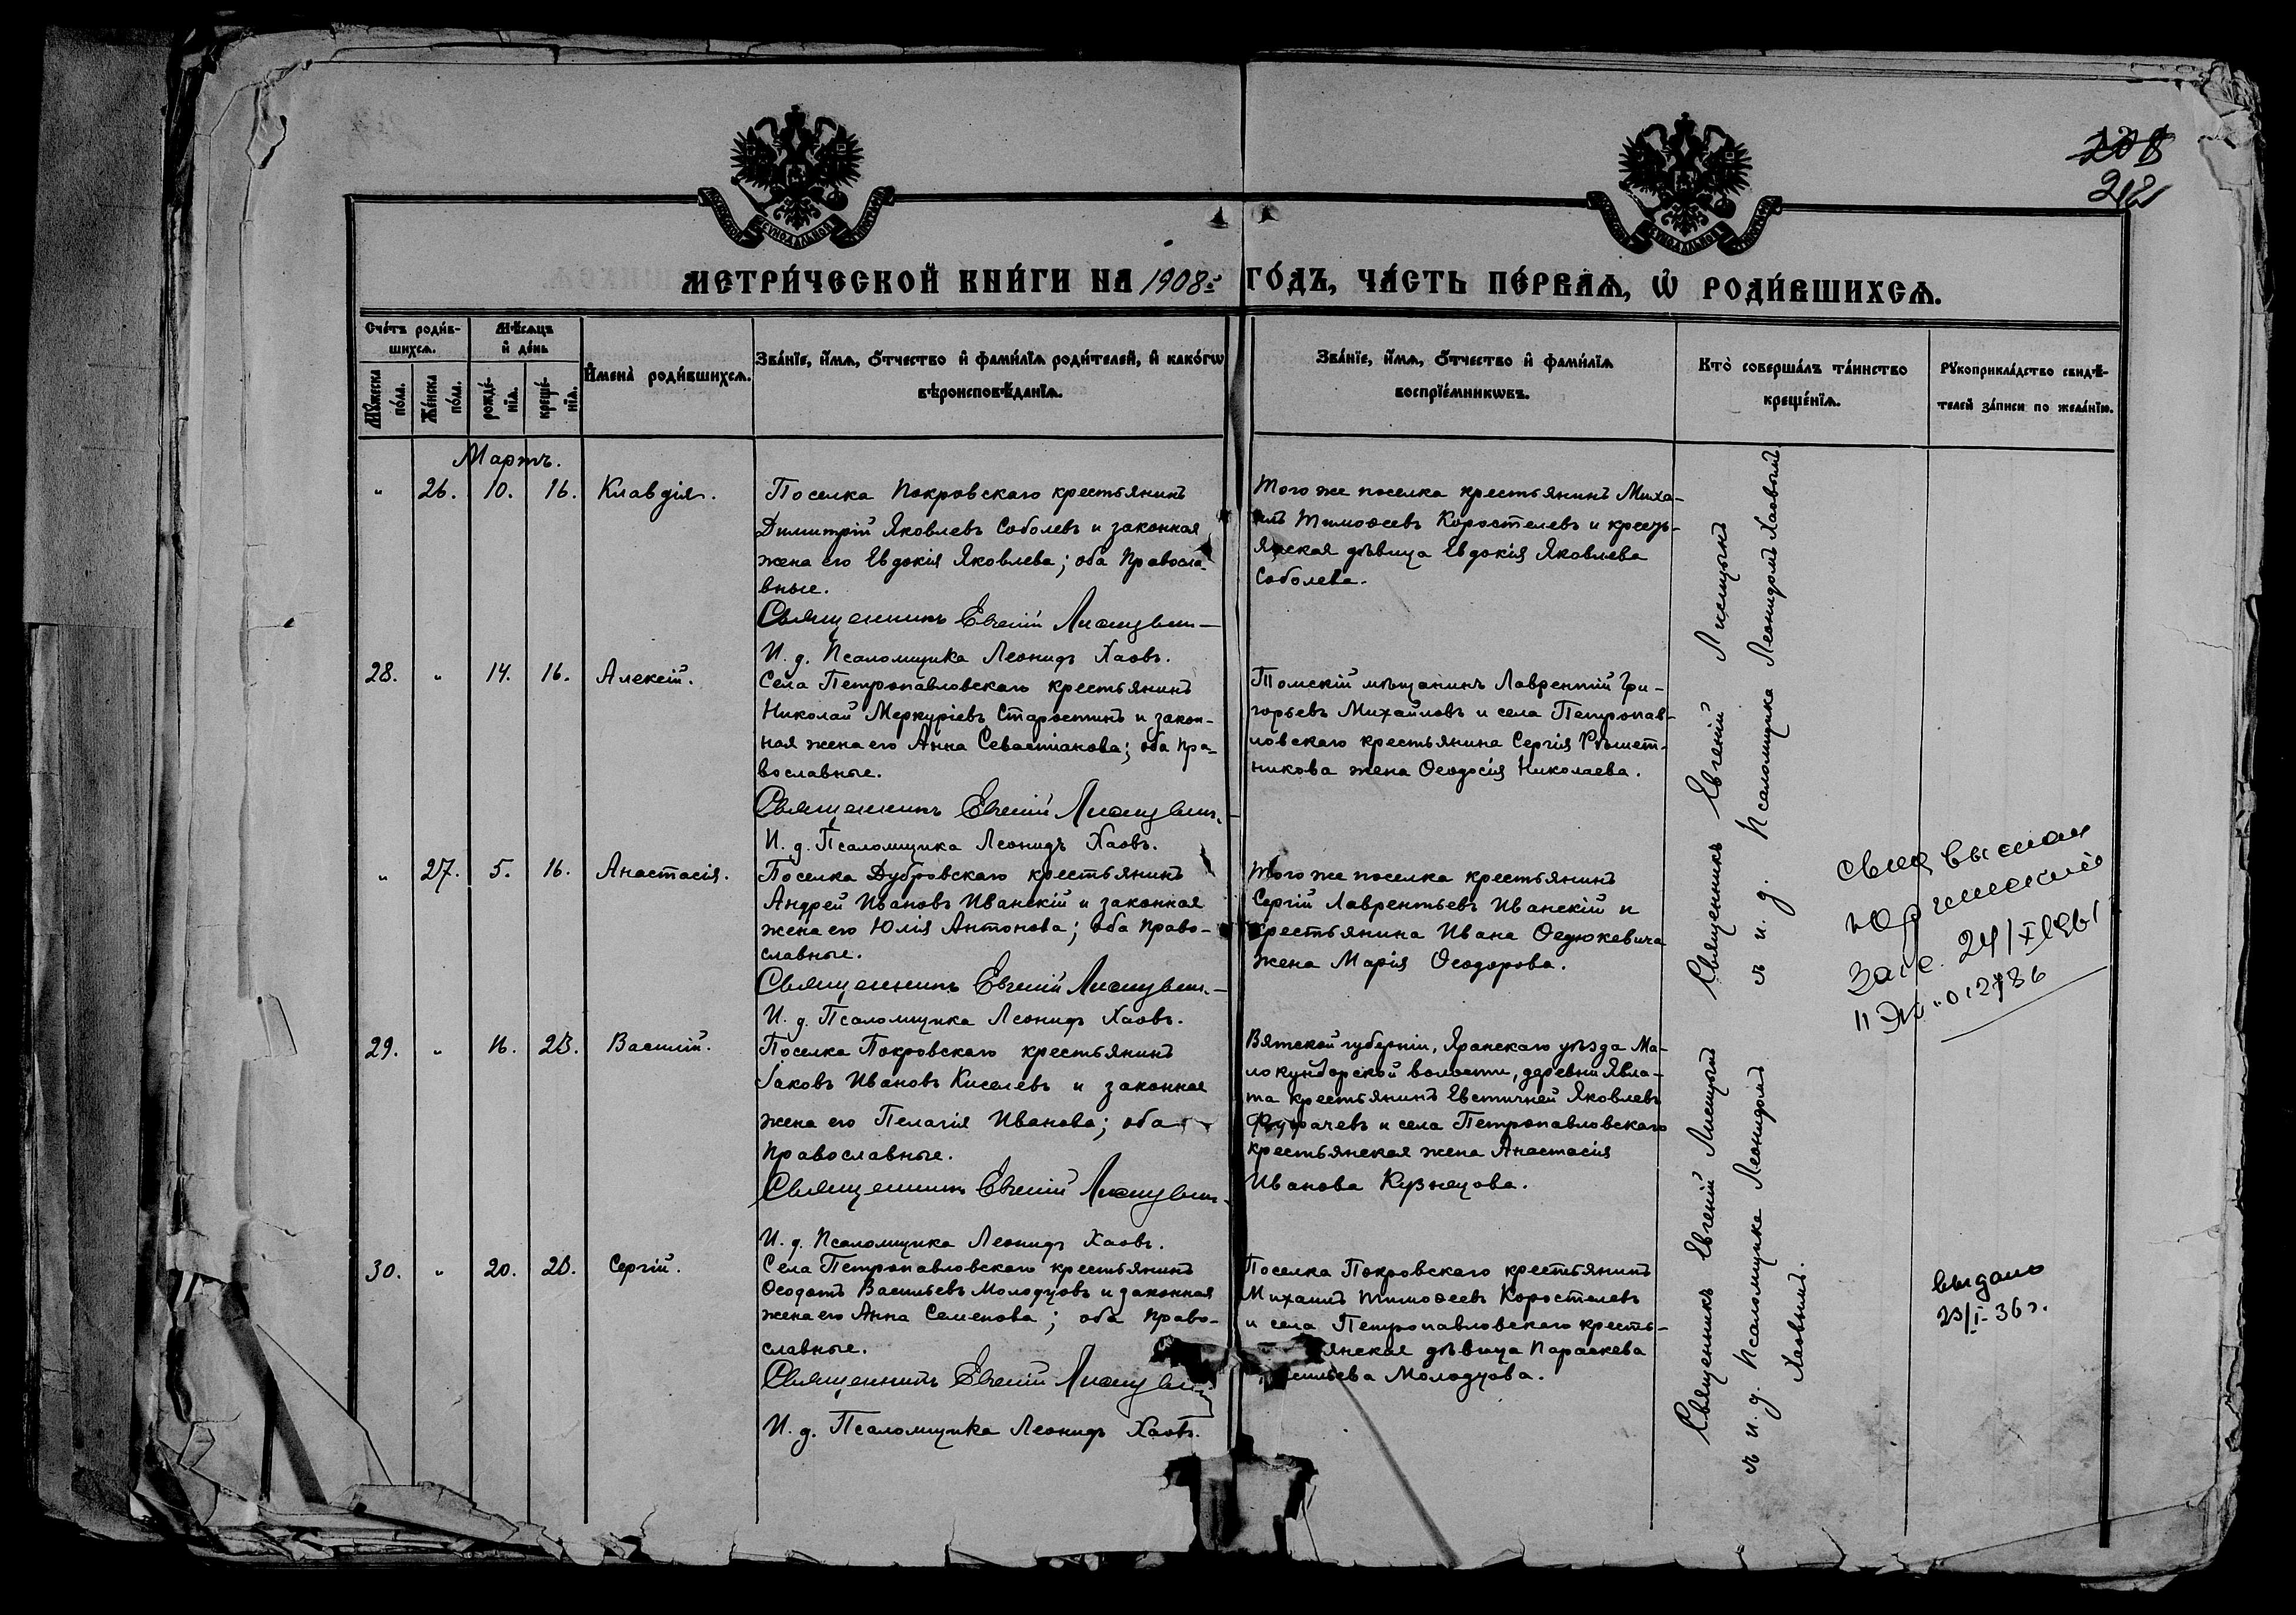 208
212
МЕТРИ́ЧЕСКОЙ КНИ́ГИ НА 1908 г. ГО́ДЪ, ЧА́СТЬ ПЕ́РВАѦ, Ѡ҆ РОДИ́ВШИХСѦ.
Сче́тъ роди́в-
шихсѧ.
Мѣ́сѧцъ
и҆ де́нь
Мꙋ́жеска по́ла.
Же́нска по́ла.
рожде́-
нїѧ.
креще́-
нїѧ.
И҆мена̀ роди́вшихсѧ.
Зва́нїе, и҆́мѧ, ѻ҆́тчество и҆ фами́лїѧ роди́телей, и҆ како́гѡ
вѣроисповѣ́данїѧ.
Зва́нїе, и҆́мѧ, ѻ҆́тчество и҆ фами́лїѧ
воспрїе́мникѡвъ.
Кто̀ соверша́лъ та́инство
креще́нїѧ.
Рꙋкоприкла́дство свидѣ́-
телей за́писи по жела́нїю.
Мартъ.
" 26. 10. 16. Клавдія.
Поселка Покровскаго крестьянинъ
Димитрій Яковлевъ Соболевъ и законная
жена его Евдокія Яковлева; оба Правосла-
вные.
Священникъ Евгеній Лисицынъ
И. д. Псаломщика Леонидъ Хаовъ.
Того же поселка крестьянинъ Миха-
илъ Тимоѳеевъ Коростелевъ и кресть-
янская дѣвица Евдокія Яковлева
Соболева.
28. " 14. 16. Алексій.
Села Петропавловскаго крестьянинъ
Николай Меркуріевъ Старостинъ и закон-
ная жена его Анна Севастіанова; оба пра-
вославные.
Священникъ Евгеній Лисицынъ
И. д. Псаломщика Леонидъ Хаовъ.
Томскій мѣщанинъ Лаврентій Гри-
горьевъ Михайловъ и села Петропав-
ловскаго крестьянина Сергія Рѣшет-
никова жена Ѳеодосія Николаева.
" 27. 5. 16. Анастасія.
Поселка Дубровскаго крестьянинъ
Андрей Ивановъ Иванскій и законная
жена его Юлія Антонова; оба право-
славные.
Священникъ Евгеній Лисицынъ
И. д. Псаломщика Леонидъ Хаовъ.
Того же поселка крестьянинъ
Сергій Лаврентьевъ Иванскій и
крестьянина Ивана Ѳедюкевича
жена Марія Ѳеодорова.
29. " 16. 23. Василій.
Поселка Покровскаго крестьянинъ
Іаковъ Ивановъ Киселевъ и законная
жена его Пелагія Иванова; оба
Православные.
Священникъ Евгеній Лисицынъ
И. д. Псаломщика Леонидъ Хаовъ.
Вятской губерніи, Яранскаго уѣзда Ма-
ло волости, деревни
крестьянинъ Яковлевъ
и села Петропавловскаго
крестьянская жена Анастасія
Иванова Кузнецова.
30. " 20. 23. Сергій.
Села Петропавловскаго крестьянинъ
Ѳеодотъ Васильевъ Молодцовъ и законная
жена его Анна Семенова; оба право-
славные.
Священникъ Евгеній Лисицынъ
И. д. Псаломщика Леонидъ Хаовъ.
Поселка Покровскаго крестьянинъ
Михаилъ Тимоѳеевъ Коростелевъ
и села Петропавловскаго кресть-
янская дѣвица Параскева
сильева Молодцова.
Священникъ Евгеній Лисицынъ
и. д. Псаломщика Леонидомъ Хаовымъ
Священникъ Евгеній Лисицынъ
и. д. Псаломщика Леонидомъ
Хаовымъ.
24/X 1961
выдано
23/I-36 г.